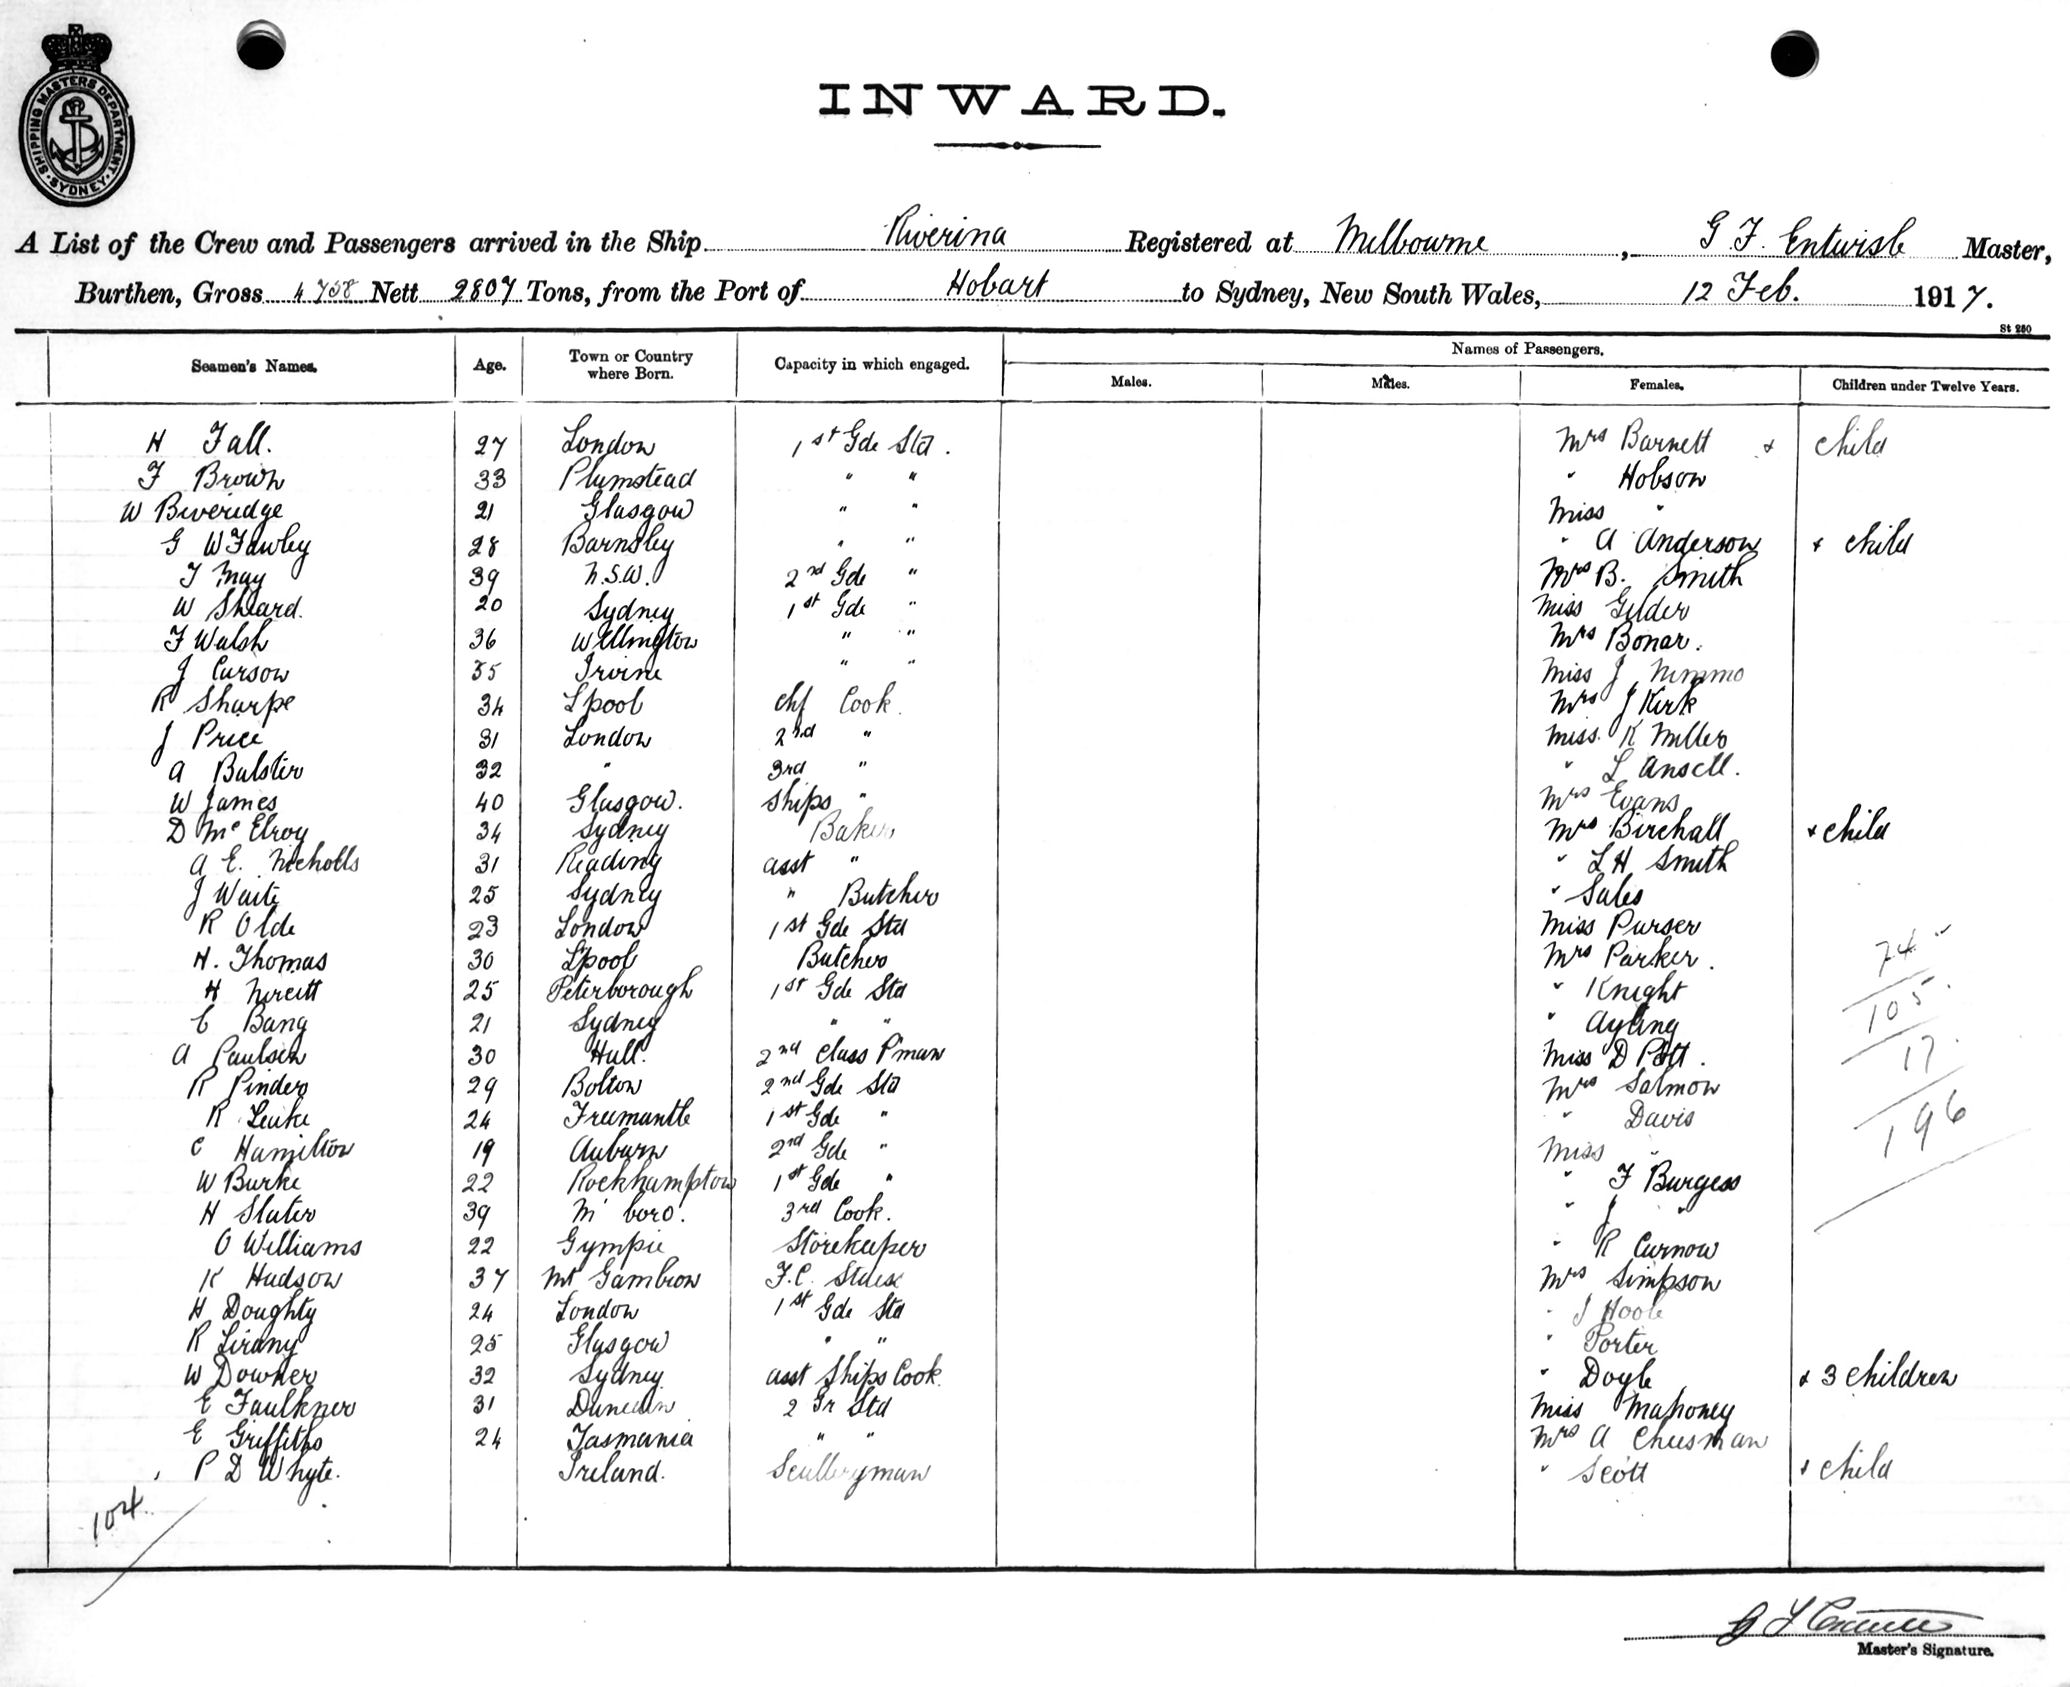 SHIPPING MASTERS DEPARTMENT. SYDNEY.
INWARD.
A List of the Crew and Passengers arrived in the Ship Riverina Registered at Melbourne, G F Entwisle Master,
Burthen, Gross 4758 Nett 2807 Tons, from the Port of Hobart to Sydney, New South Wales, 12 Feb. 1917.
St 280
Seamen's Names. Age. Town or Country where Born. Capacity in which engaged. Names of Passengers.
Males. Males. Females. Children under Twelve Years.
H Fall. 27 London 1st Gde Std. Mrs Barnett & child
F Brown 33 Plumstead " " " Hobson
W Beveridge 21 Glasgow " " Miss "
G W Fawley 28 Barnsley " " " A Anderson & child
T May 39 N.S.W. 2nd Gde " Mrs B. Smith
W Sheard. 20 Sydney 1st Gde " Miss Gilder
F Walsh 36 Wellington " " Mrs Bonar.
J Curson 35 Irvine " " Miss J Nimmo
R Sharpe 34 L'pool chf Cook. Mrs J Kirk
J Price 31 London 2nd " Miss. K Miller
A Bulster 32 " 3rd " " L Ansell.
W James 40 Glasgow. Ships " Mrs Evans
D McElroy 34 Sydney Baker Mrs Birchall & child
A E. Nicholls 31 Reading asst " " L H Smith
J Waite 25 Sydney " Butcher " Sales
R Olde 23 London 1st Gde Std Miss Purser
H. Thomas 30 L'pool Butcher Mrs Parker.
H 25 Peterborough 1st Gde Std " Knight
C Bang 21 Sydney " " " Ayling
A Paulsen 30 Hull. 2nd Class P'man Miss D Pott.
R Pinder 29 Bolton 2nd Gde Std Mrs Salmon
R Leuke 24 Freemantle 1st Gde " " Davis
C Hamilton 19 Auburn 2nd Gde " Miss "
W Burke 22 Rockhampton 1st Gde " " F Burgess
H Slater 39 M'boro. 3rd Cook. " J "
O Williams 22 Gympie Storekeeper " R Curnow
K Hudson 37 Mt Gambier F.C. Mrs Simpson
H Doughty 24 London 1st Gde Std " J Hoole
R 25 Glasgow " " " Porter
W Downer 32 Sydney asst Ships Cook. " Doyle & 3 children
E Faulkner 31 Dunedin 2 Gr Std Miss Mahoney
E Griffiths 24 Tasmania " " Mrs A Cheesman
P D Whyte. Ireland. Sculleryman " Scott & child
74
105.
17.
196
104
G F Entwisle
Master's Signature.